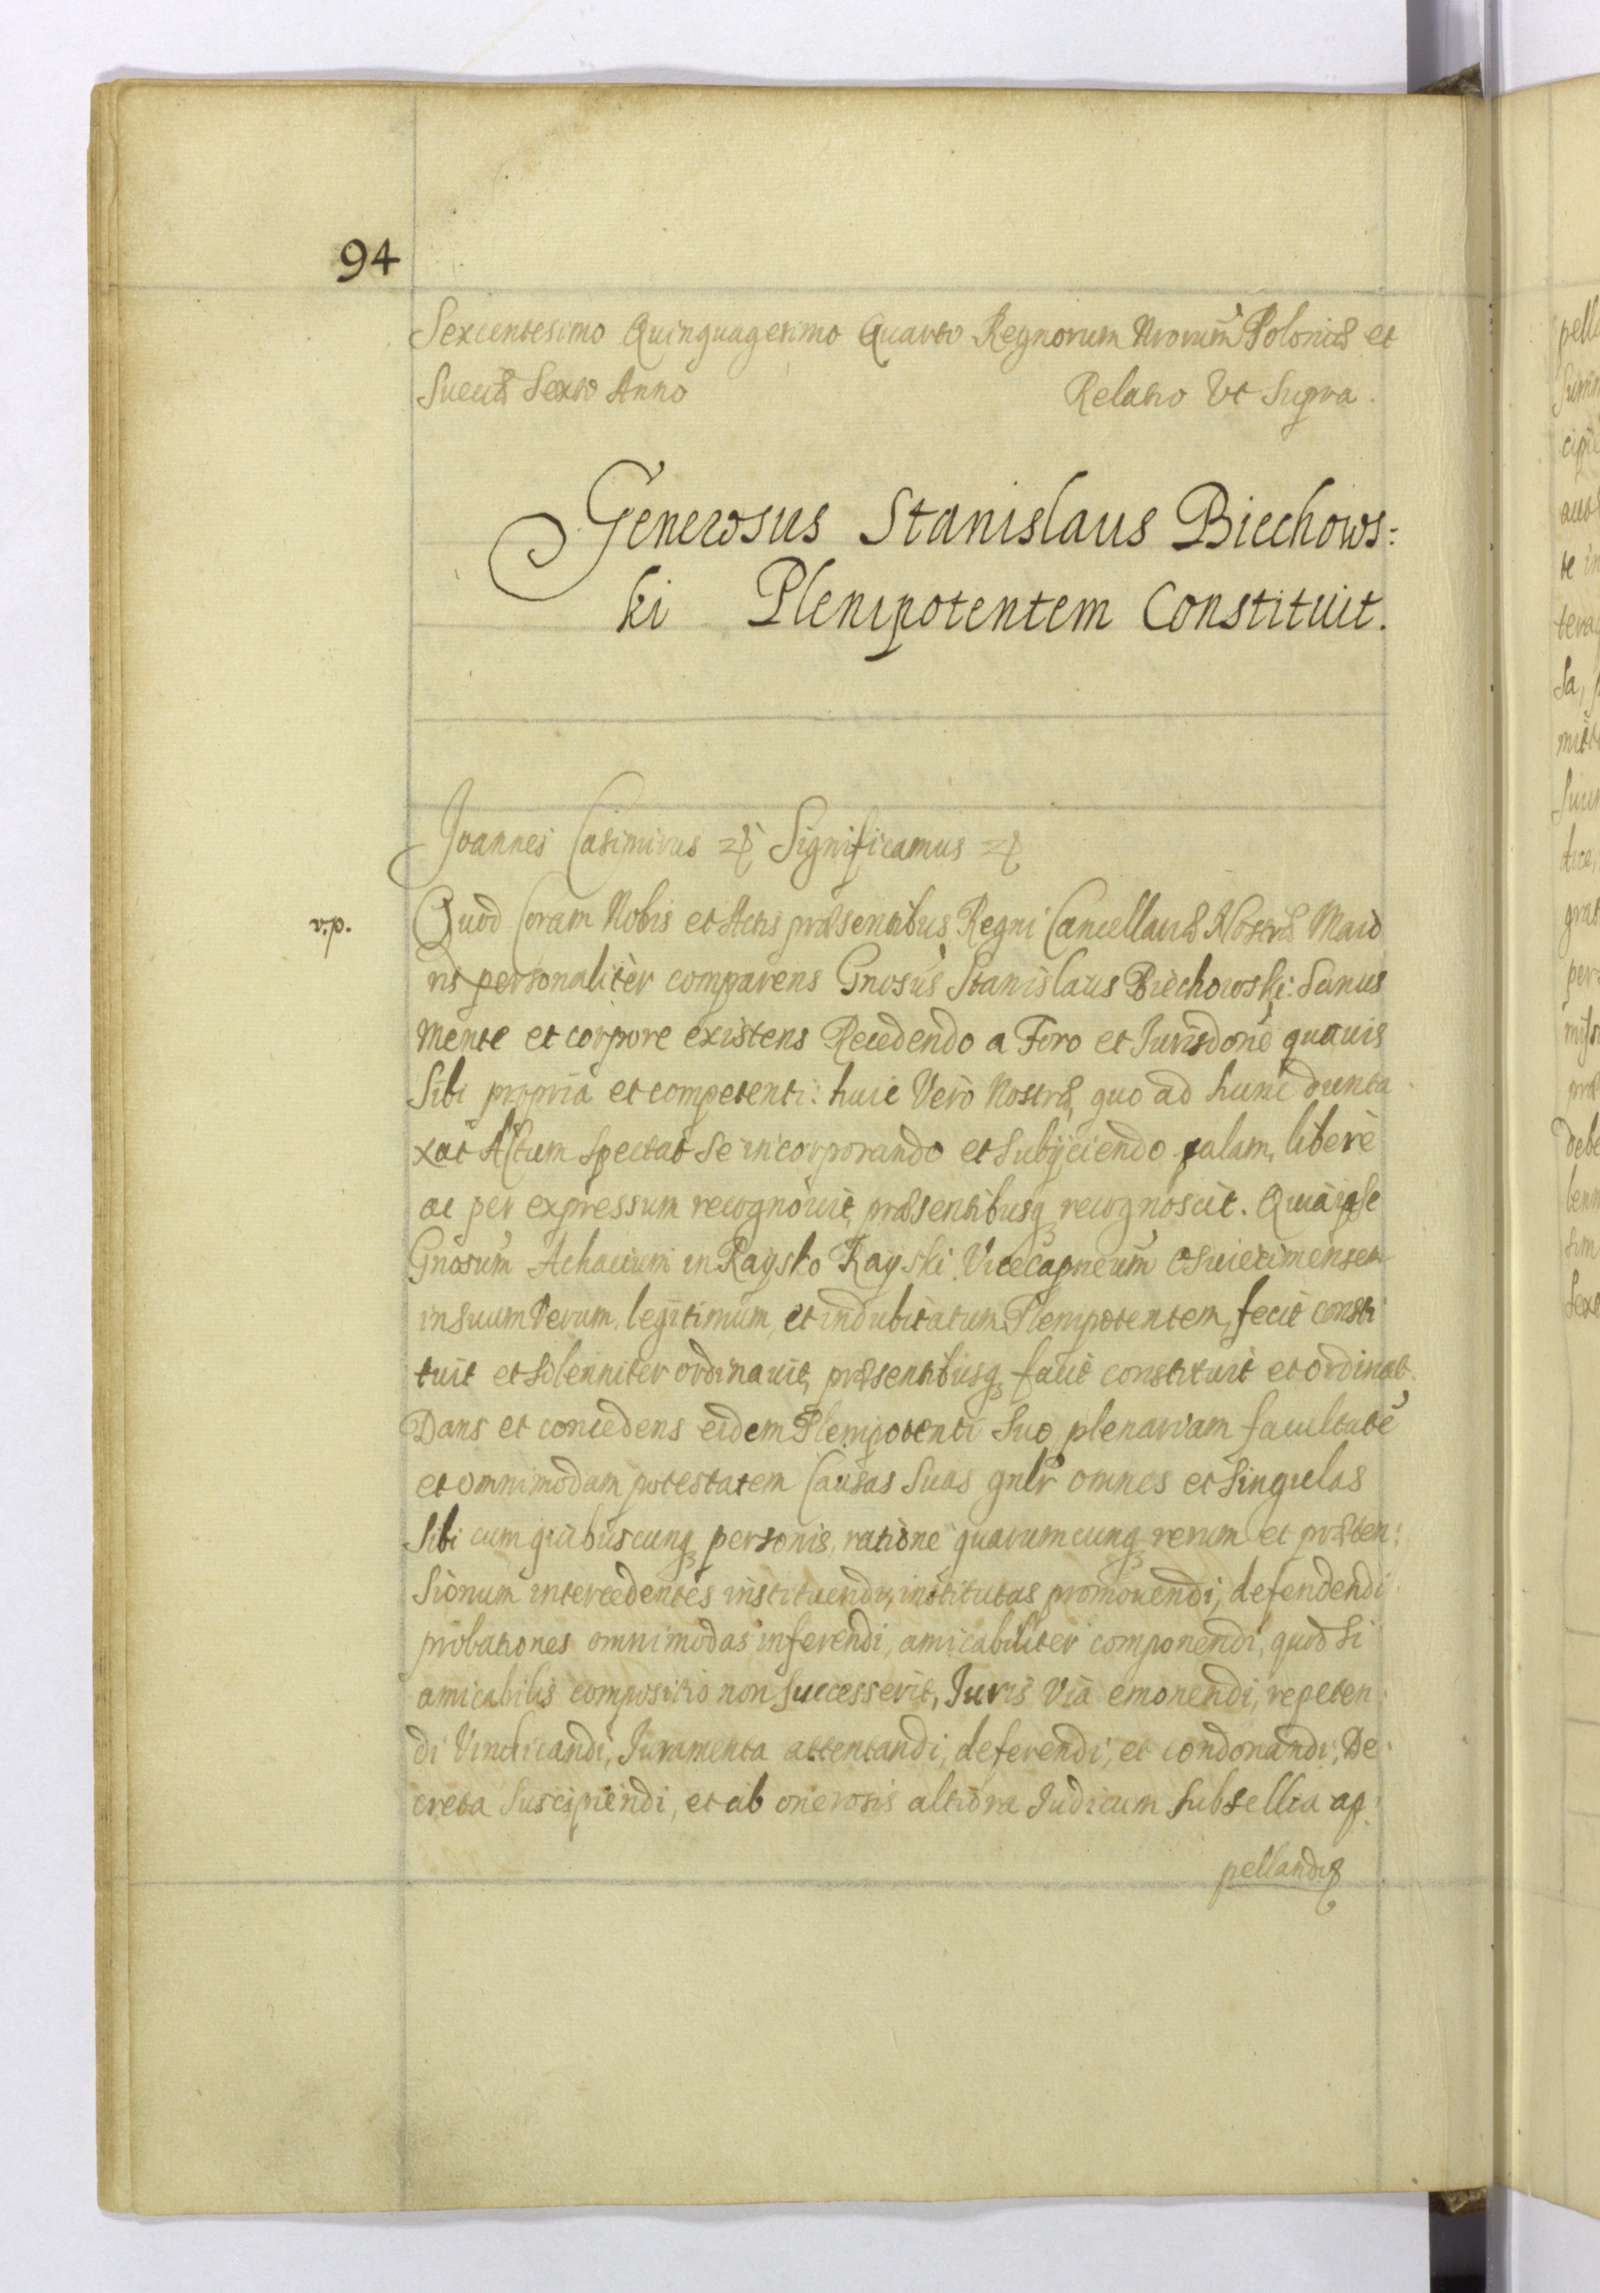 94
Sexcentesimo Quinquagesimo Quarto Regnorum Nrorum Poloniæ et
Sueciæ Sexto Anno Relatio Vt Supra.
Generosus Stanislaus Biechows:
ki Plenipotentem Constituit.
Joannes Casimirus Significamus
v.p.
Quod Coram Nobis et Actis præsentibus Regni Cancellariæ Nostræ Maio
ris personalitèr comparens Gnosus Stanislaus Biechowski: Sanus
Mente et corpore existens Recedendo a Foro et Jurisdone quauis
Sibi propria et competenti: huic Verò Nostræ, quo ad hunc dunta
xat Actum Spectat Se incorporando et Subijciendo palam, liberè
ac per expressum recognouit, præsentibusq recognoscit. Quia ipse
Gnosum Achacium in Raysko Rayski Vicecapneum Oswiecimensem
in Suum Verum, legitimum, et indubitatum Plenipotentem, fecit consti
tuit et Solenniter ordinauit, præsentibusq facit constituit et ordinat.
Dans et concedens eidem Plenipotenti Suo plenariam facultatē
et omnimodam potestatem Causas Suas gnlr omnes et Singulas
Sibi cum quibuscunq personis, ratione quarumcunq rerum et præten:
Sionum intercedentes instituendi, institutas promouendi, defendendi
probationes omnimodas inferendi, amicabiliter componendi, quod Si
amicabilis compositio non Successerit, Juris Via emonendi, repeten:
di Vindicandi, Juramenta attentandi, deferendi, et condonandi, De:
creta Suscipiendi, et ab onerosis altiora Judicum Subsellia ap:
pellandi